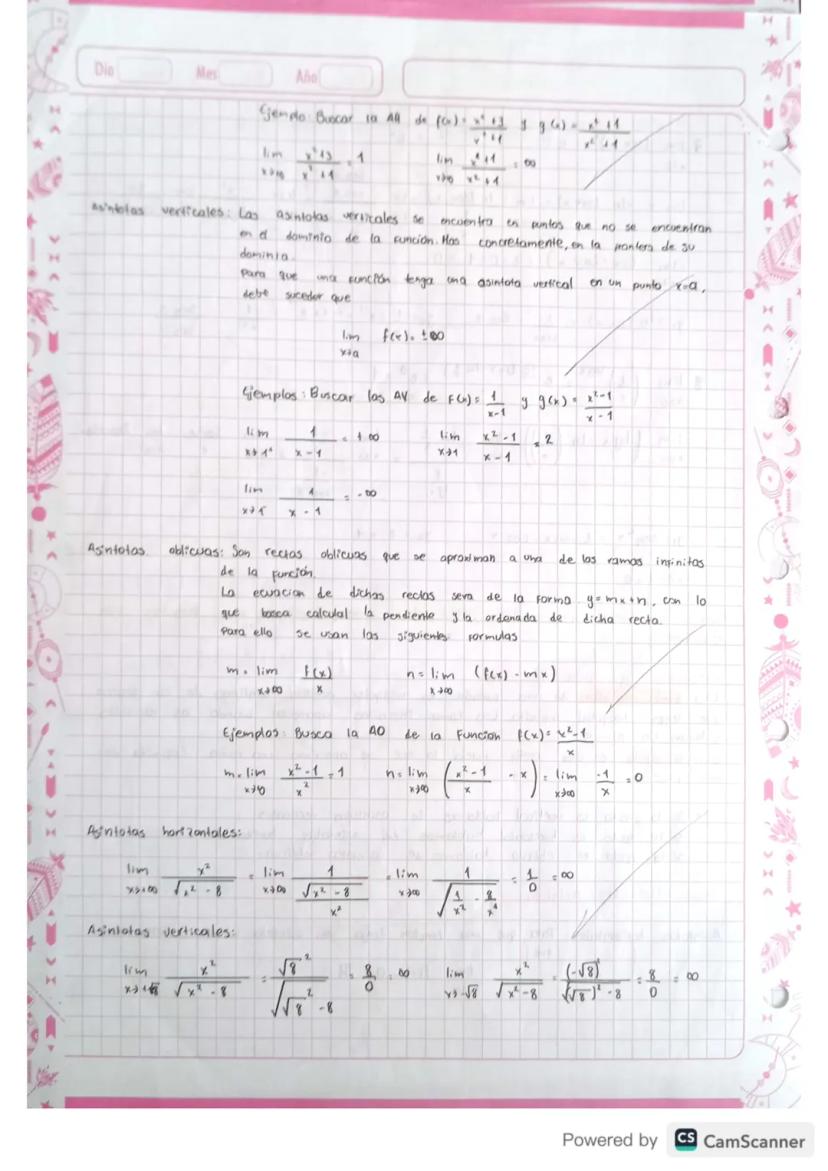 Dia Mes Año
Ejemplo: Buscar la AH de f(x) = y g(x) = x⁴+1 / x²+1
lim = 1 lim x⁴+1 / x²+1 = ∞
Asintotas verticales: Las asintotas verticales se encuentra en puntos que no se encuentran
en el dominio de la función. Mas concretamente, en la frontera de su
dominio.
Para que una función tenga una asintota vertical en un punto x=a,
debe suceder que
lim x→a f(x) = ±∞
Ejemplos: Buscar las AV de f(x) = 1 / x-1 y g(x) = x²-1 / x-1
lim x→1⁺ 1 / x-1 = +∞ lim x→1 x²-1 / x-1 = 2
lim 1 / x-1 = -∞
Asintotas oblicuas: Son rectas oblicuas que se aproximan a una de las ramas infinitas
de la función.
La ecuacion de dichas rectas sera de la forma y=mx+n, con lo
que calcular la pendiente y la ordenada de dicha recta.
Para ello se usan las siguientes formulas
m = lim x→∞ f(x) / x n = lim x→∞ (f(x) - mx)
Ejemplos: Busca la AO de la Función f(x) = x²-1 / x
m = lim x→∞ x²-1 / x² = 1 n = lim x→∞ (x²-1 / x - x) = lim x→∞ -1 / x = 0
Asintotas horizontales:
lim x→+∞ x² / √x²-8 = lim x→∞ 1 / √x²-8 / x² = lim x→∞ 1 / √1/x² - 8/x⁴ = 1/0 = ∞
Asintotas verticales:
lim x→+√8 x² / √x²-8 = √8² / √√8²-8 = 8/0 = ∞ lim x→-√8 x² / √x²-8 = (-√8)² / √(√8)²-8 = 8/0 = ∞
Powered by CS CamScanner